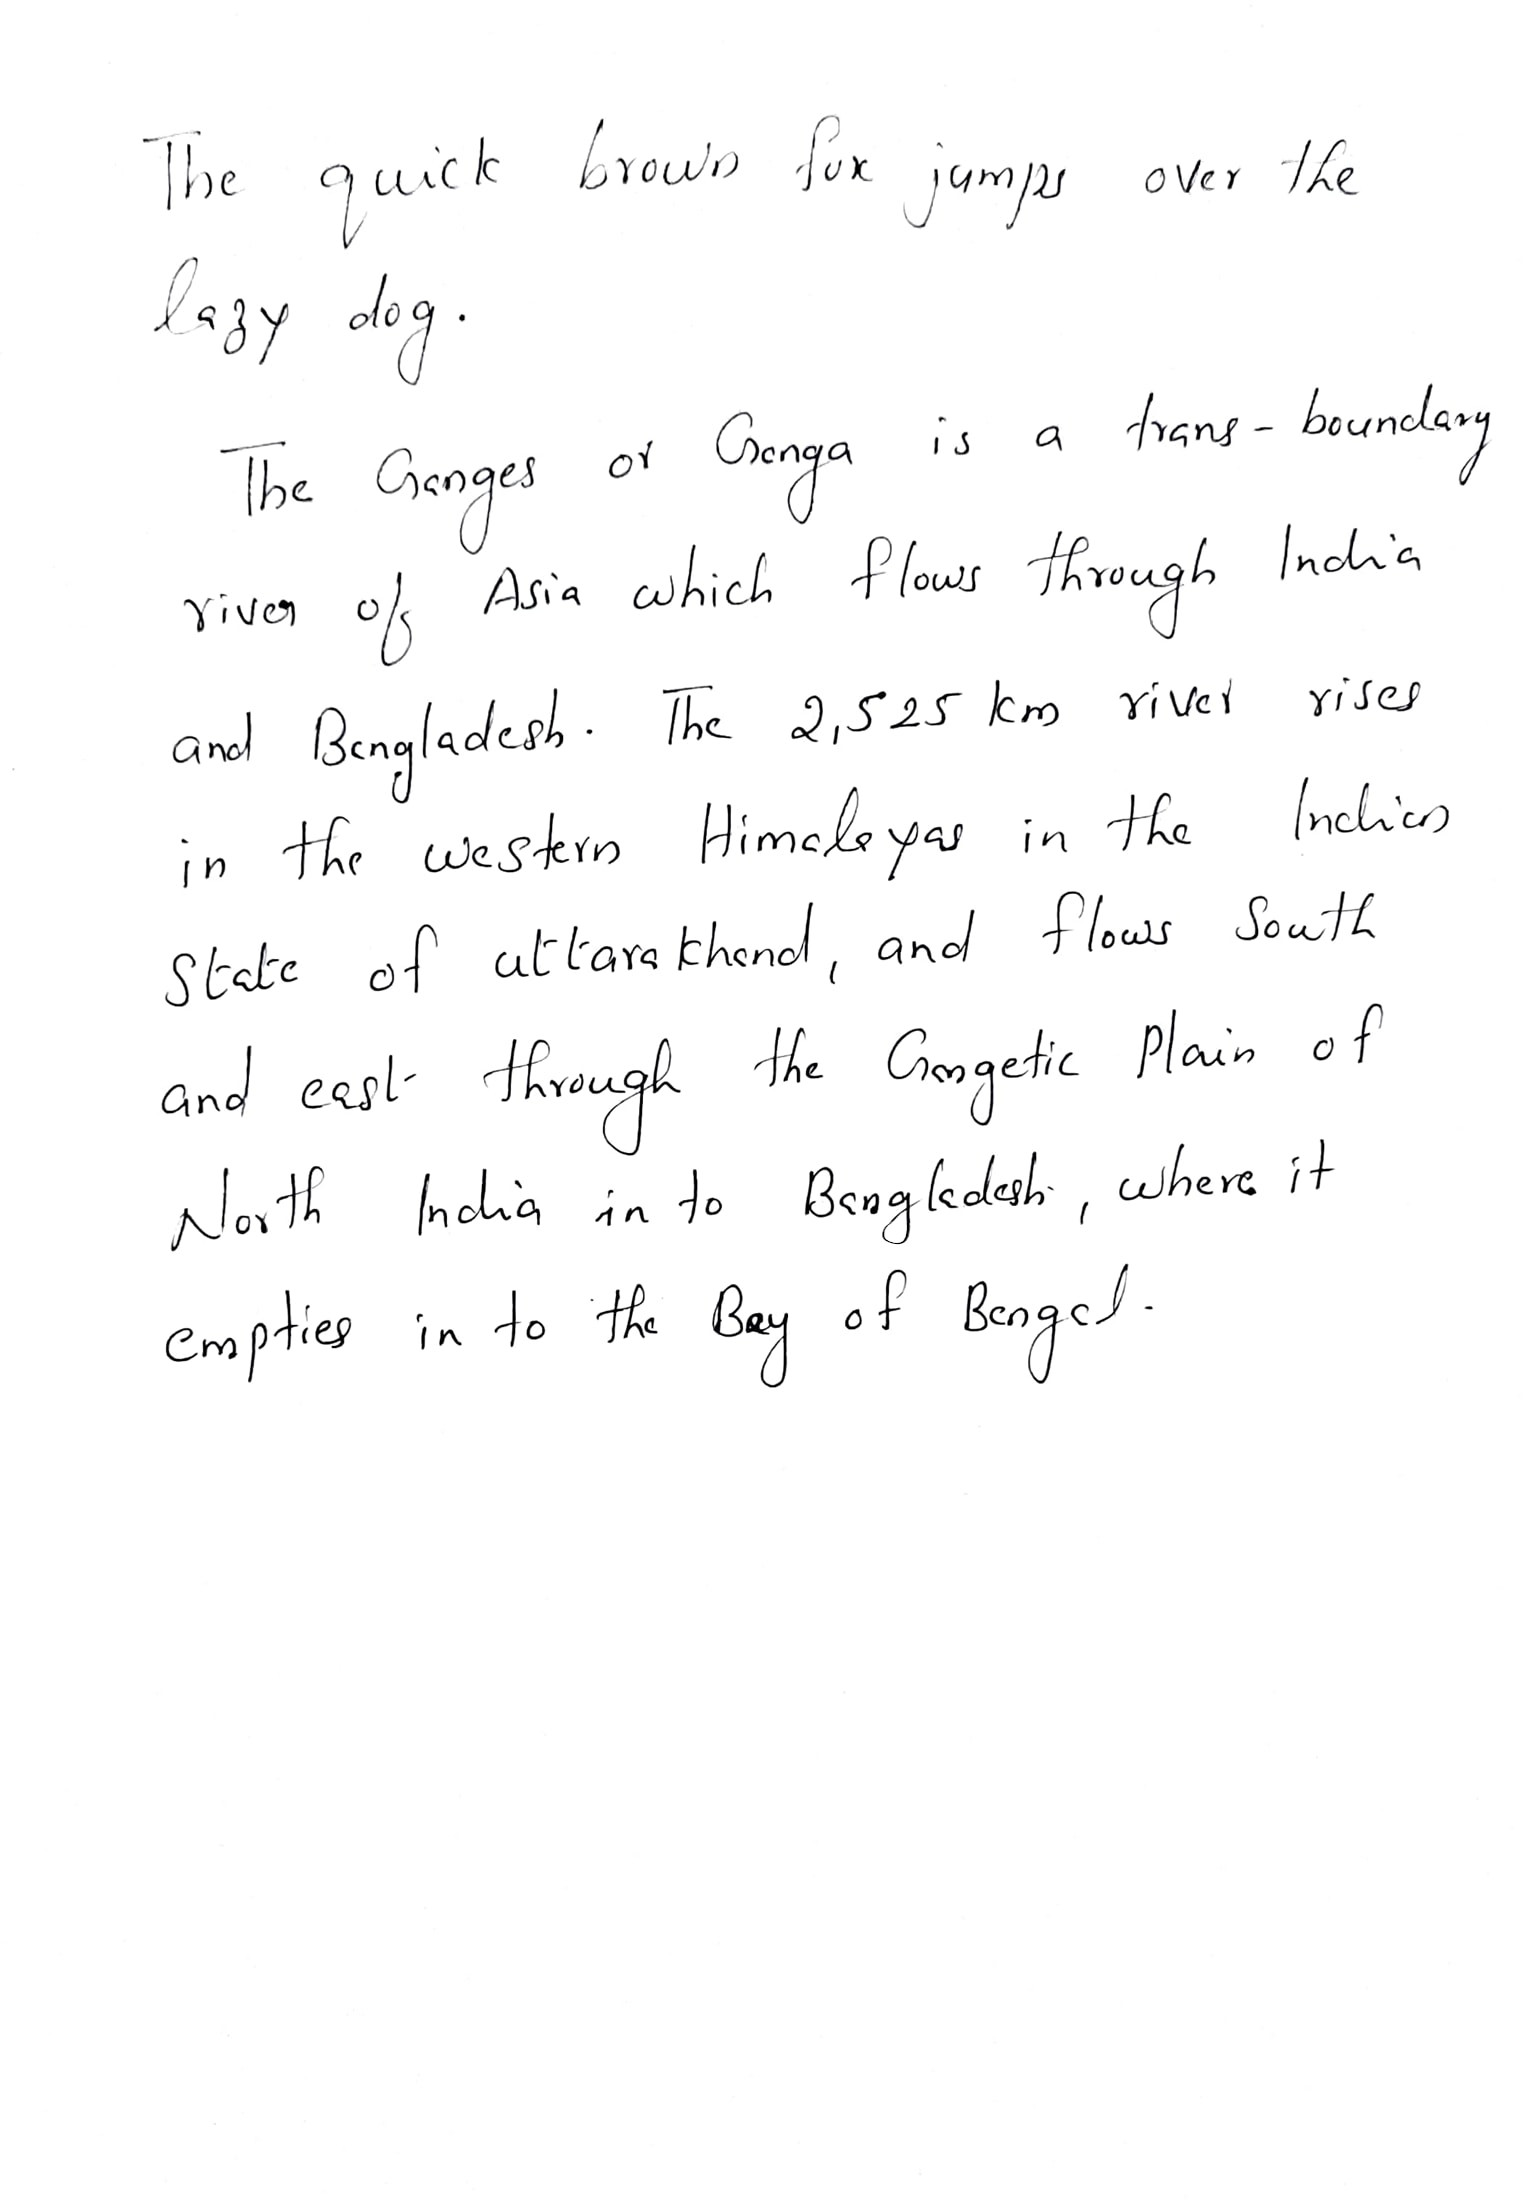 The quick brown fox jumps over the
lazy dog.
The Ganges or Ganga is a trans-boundary
river of Asia which flows through India
and Bangladesh. The 2,525 km river rises
in the western Himalayas in the Indian
State of uttarakhand, and flows South
and east through the Gangetic Plain of
North India in to Bangladesh, where it
empties in to the Bay of Bengal.